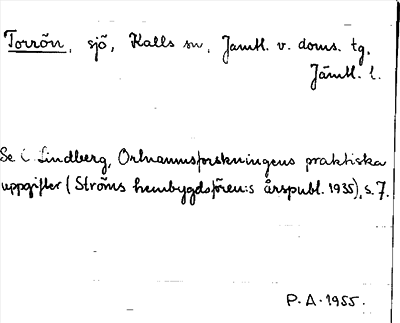 Torrön, sjö, Kalls sn, Jämtl. v. doms. tg,
Jämtl. l.
Se C. Lindberg, Ortnamnsforskningens praktiska
uppgifter (Ströms hembygdsfören:s årspubl. 1935), s. 7.
P. A. 1955.